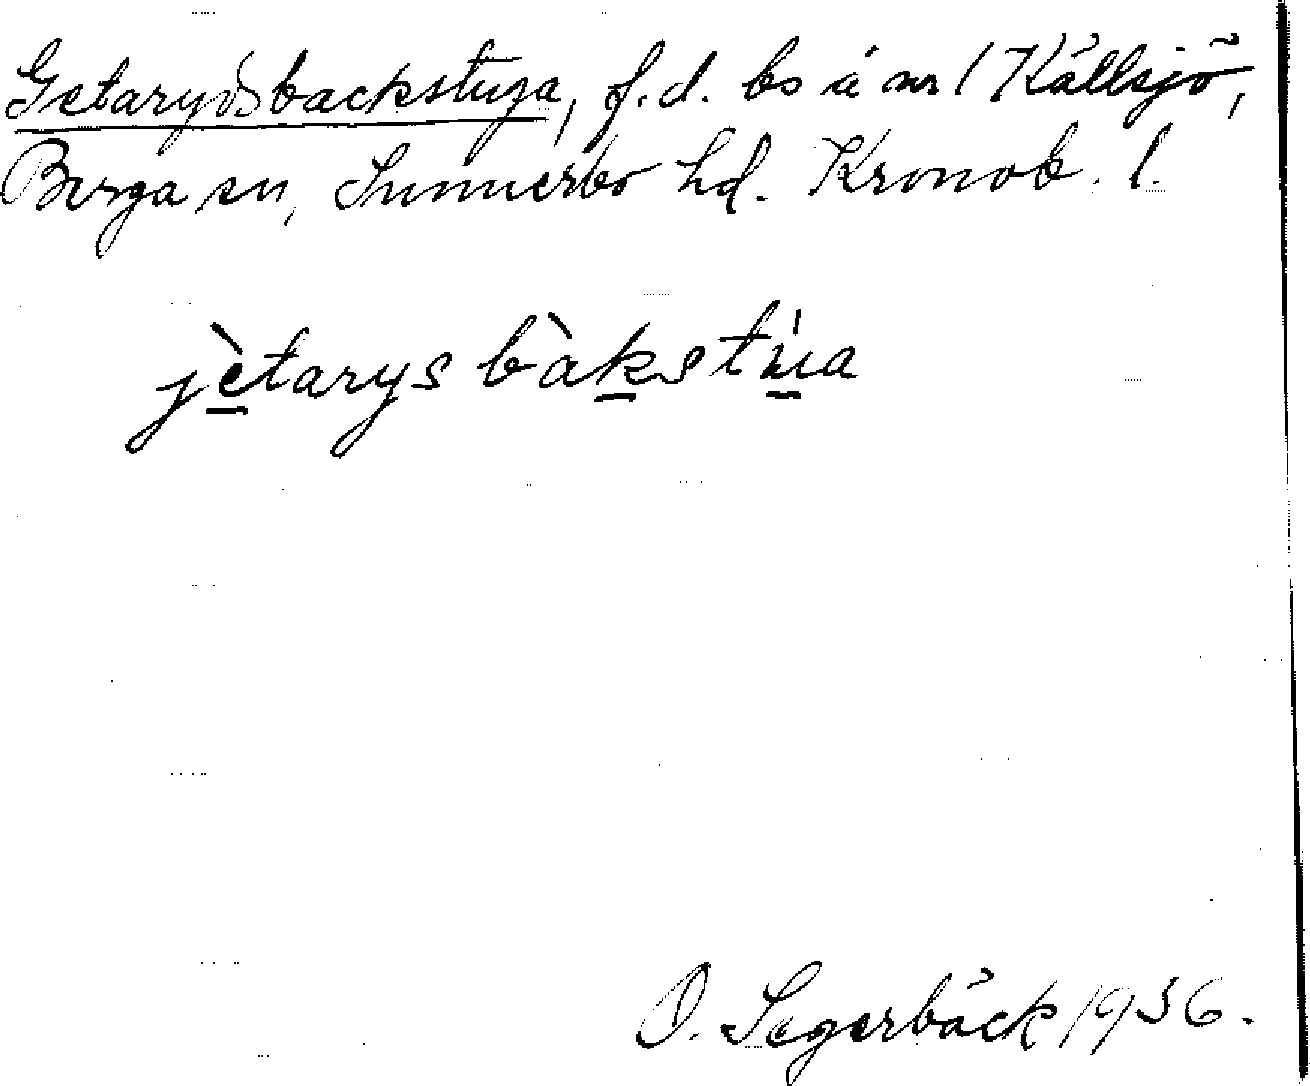 Getarydsbackstuga, f.d. bs å nr 1 Källsjö,
Berga sn, Sunnerbo hd. Kronob. l.
jètarys bàkstu̍a
O. Segerbäck 1936.